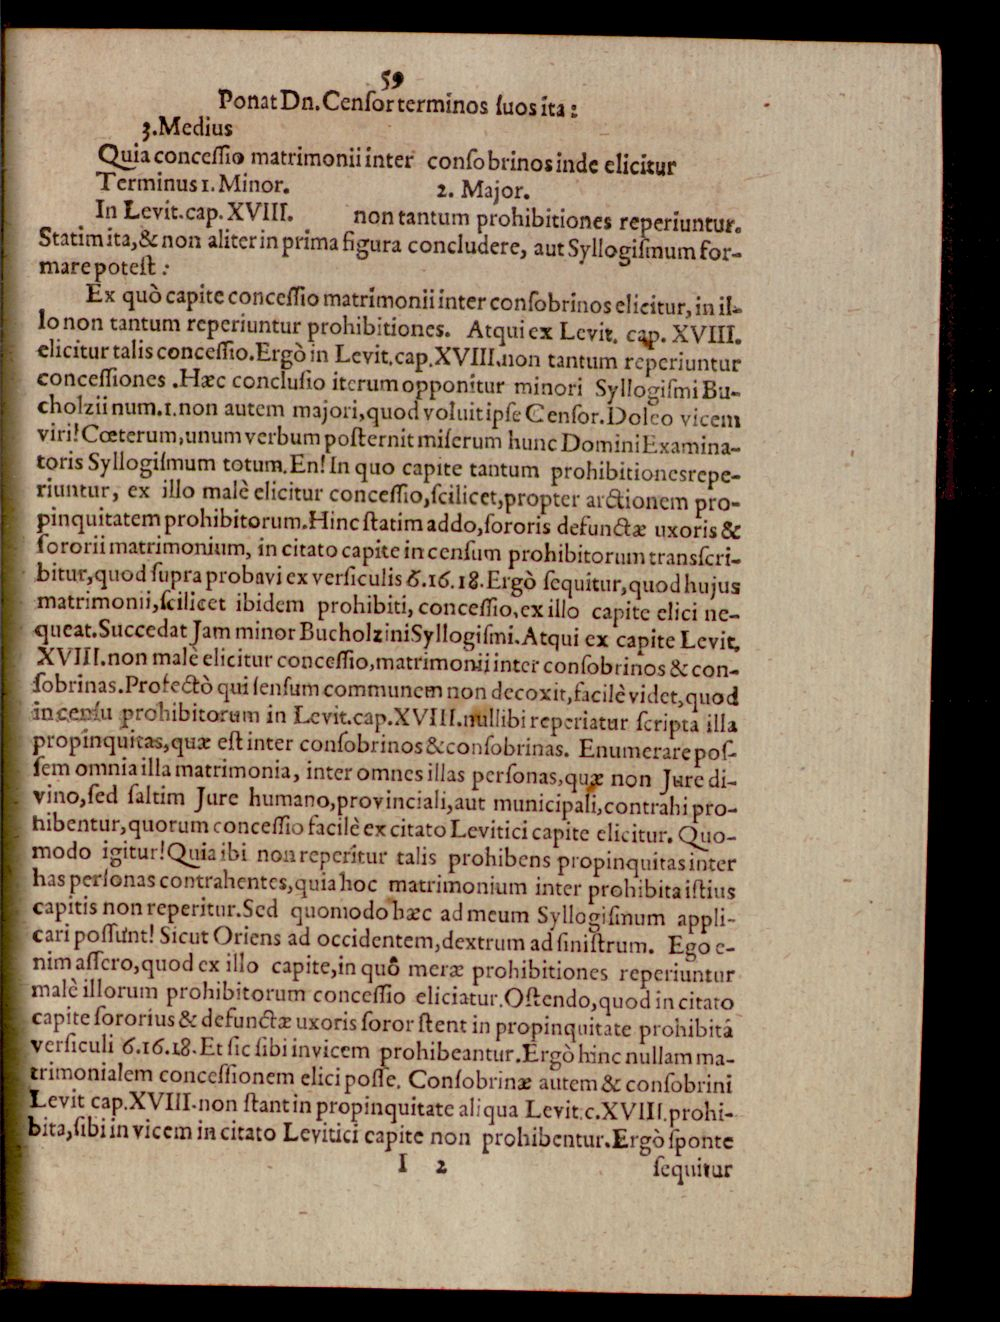 59
Ponat Dn. Cenſor terminos ſuos ita:
3. Medius
Quia conceſſio matrimonii inter conſobrinos inde elicitur
Terminus 1. Minor. 2. Major.
In Levit. cap. XVIII. non tantum prohibitiones reperiuntur.
Statim ita, & non aliter in prima figura concludere, aut Syllogiſmum for-
mare poteſt:
Ex quò capite conceſſio matrimonii inter conſobrinos elicitur, in il-
lo non tantum reperiuntur prohibitiones. Atqui ex Levit. cap. XVIII.
elicitur talis conceſſio. Ergò in Levit. cap. XVIII. non tantum reperiuntur
conceſſiones. Hæc concluſio iterum opponitur minori Syllogiſmi Bu-
cholzii num. 1. non autem majori, quod voluit ipſe Cenſor. Doleo vicem
viri! Cœterum, unum verbum poſternit miſerum hunc Domini Examina-
toris Syllogiſmum totum. En! In quo capite tantum prohibitiones repe-
riuntur, ex illo malè elicitur conceſſio, ſcilicet, propter arctionem pro-
pinquitatem prohibitorum. Hinc ſtatim addo, ſororis defunctæ uxoris &
ſororii matrimonium, in citato capite in cenſum prohibitorum tranſcri-
bitur, quod ſupra probavi ex verſiculis 6. 16. 18. Ergò ſequitur, quod hujus
matrimonii, ſcilicet ibidem prohibiti, conceſſio, ex illo capite elici ne-
queat. Succedat Jam minor Bucholzini Syllogiſmi. Atqui ex capite Levit.
XVIII. non malè elicitur conceſſio, matrimonii inter conſobrinos & con-
ſobrinas. Profectò qui ſenſum communem non decoxit, facilè videt, quod
in cenſu prohibitorum in Levit. cap. XVIII. nullibi reperiatur ſcripta illa
propinquitas, quæ eſt inter conſobrinos & conſobrinas. Enumerare poſ-
ſem omnia illa matrimonia, inter omnes illas perſonas, quæ non Jure di-
vino, ſed ſaltim Jure humano, provinciali, aut municipali, contrahi pro-
hibentur, quorum conceſſio facilè ex citato Levitici capite elicitur. Quo-
modo igitur! Quia ibi non reperitur talis prohibens propinquitas inter
has perſonas contrahentes, quia hoc matrimonium inter prohibita iſtius
capitis non reperitur. Sed quomodo hæc ad meum Syllogiſmum appli-
cari poſſunt! Sicut Oriens ad occidentem, dextrum ad ſiniſtrum. Ego e-
nim aſſero, quod ex illo capite, in quô meræ prohibitiones reperiuntur
malè illorum prohibitorum conceſſio eliciatur. Oſtendo, quod in citato
capite ſororius & defunctæ uxoris ſoror ſtent in propinquitate prohibitâ
verſiculi 6. 16. 18. Et ſic ſibi invicem prohibeantur. Ergò hinc nullam ma-
trimonialem conceſſionem elici poſſe. Conſobrinæ autem & conſobrini
Levit cap. XVIII. non ſtant in propinquitate aliqua Levit. c. XVIII. prohi-
bita, ſibi in vicem in citato Levitici capite non prohibentur. Ergò ſponte
I 2 ſequitur